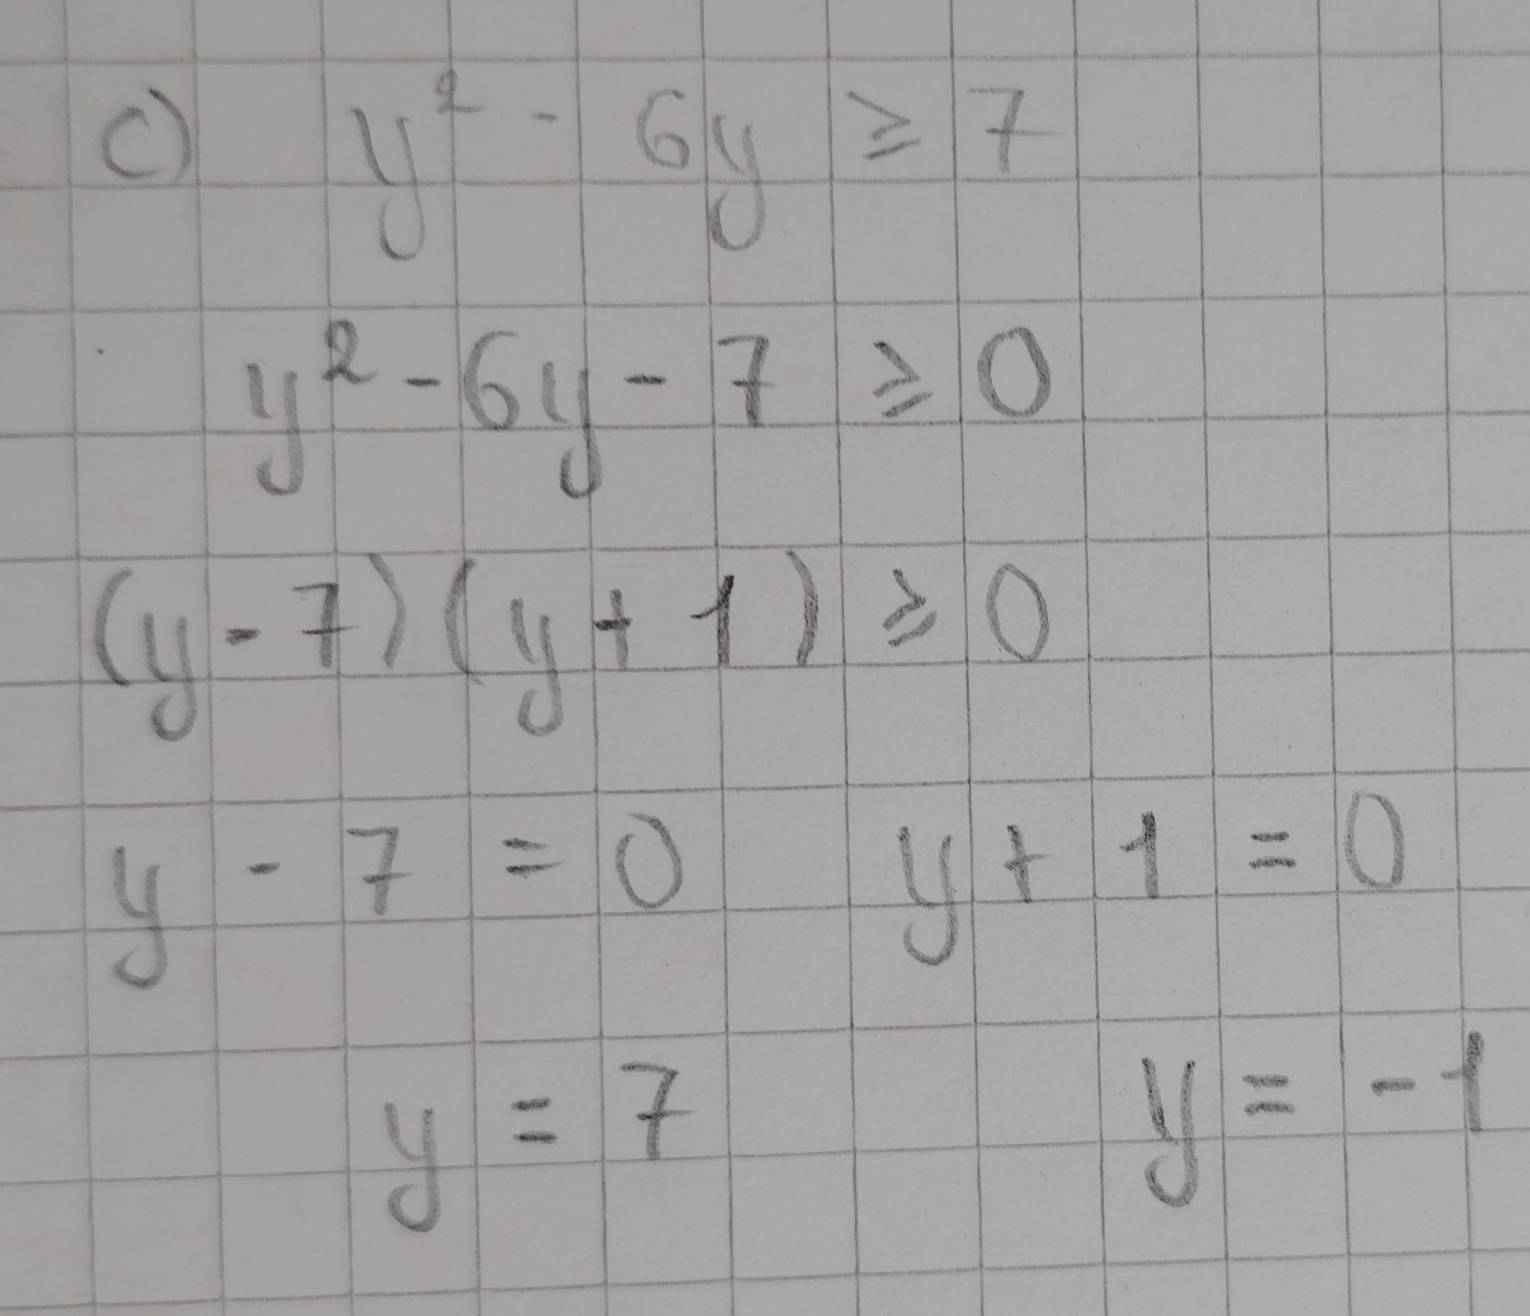 c) y² - 6y ≥ 7
y² - 6y - 7 ≥ 0
(y - 7)(y + 1) ≥ 0
y - 7 = 0 y + 1 = 0
y = 7 y = -1